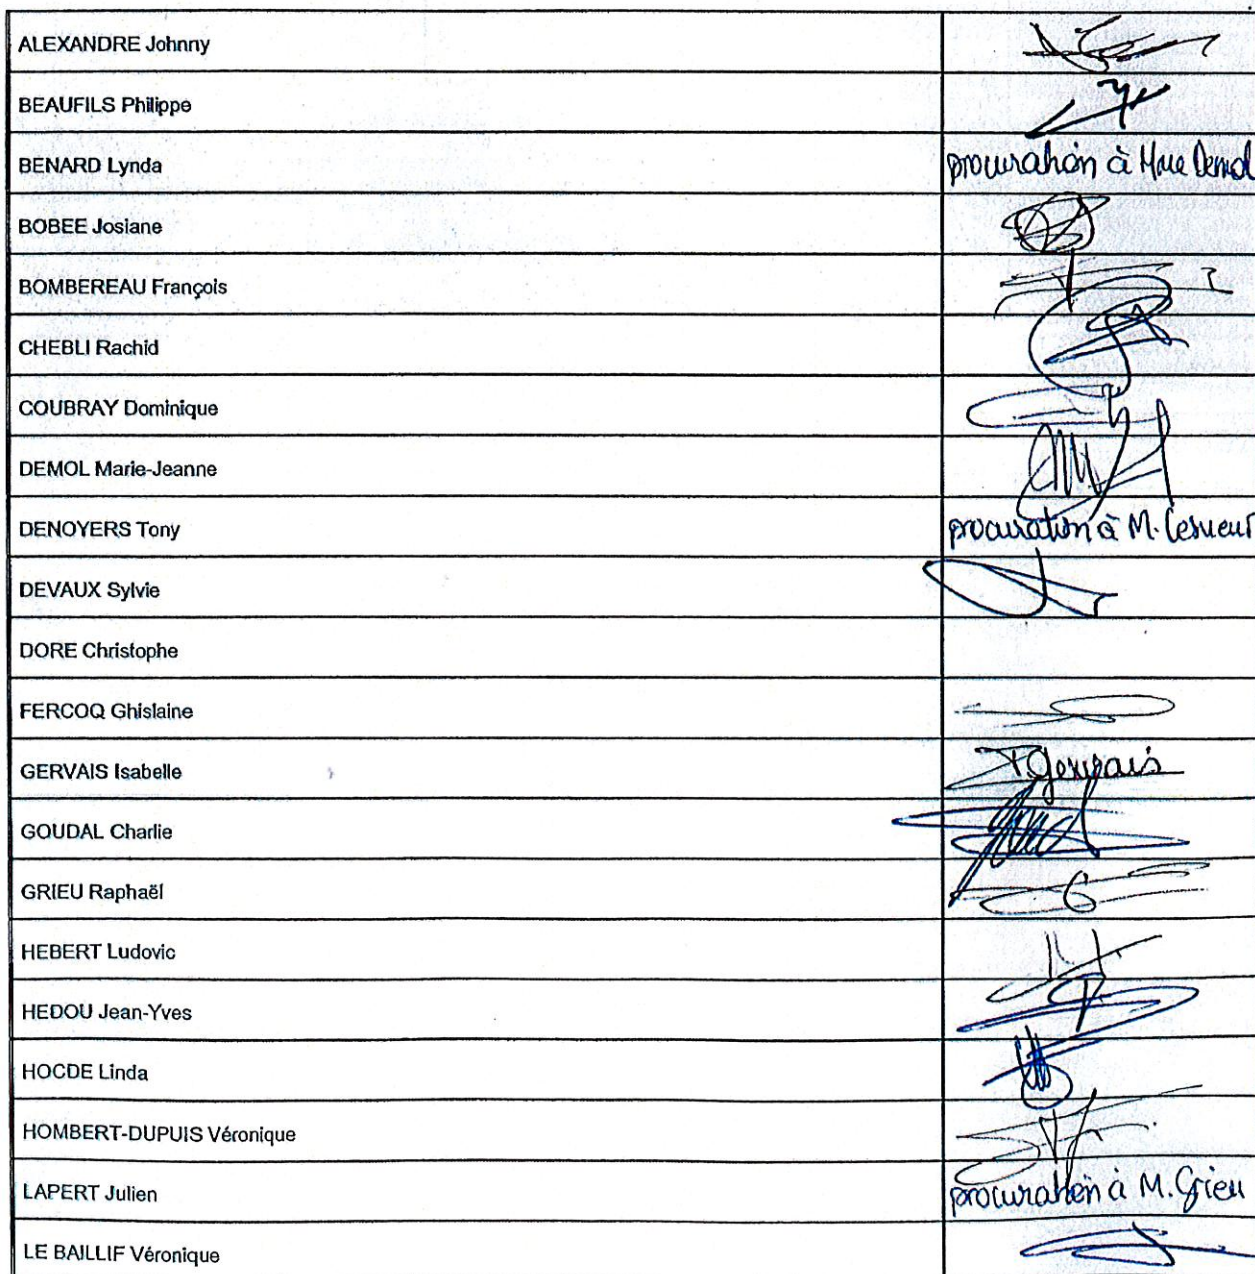 ALEXANDRE Johnny
BEAUFILS Philippe
BENARD Lynda procuration à Mme Demol
BOBEE Josiane
BOMBEREAU François
CHEBLI Rachid
COUBRAY Dominique
DEMOL Marie-Jeanne
DENOYERS Tony procuration à M. Lesueur
DEVAUX Sylvie
DORE Christophe
FERCOQ Ghislaine
GERVAIS Isabelle I. Gervais
GOUDAL Charlie
GRIEU Raphaël
HEBERT Ludovic
HEDOU Jean-Yves
HOCDE Linda
HOMBERT-DUPUIS Véronique
LAPERT Julien procuration à M. Grieu
LE BAILLIF Véronique